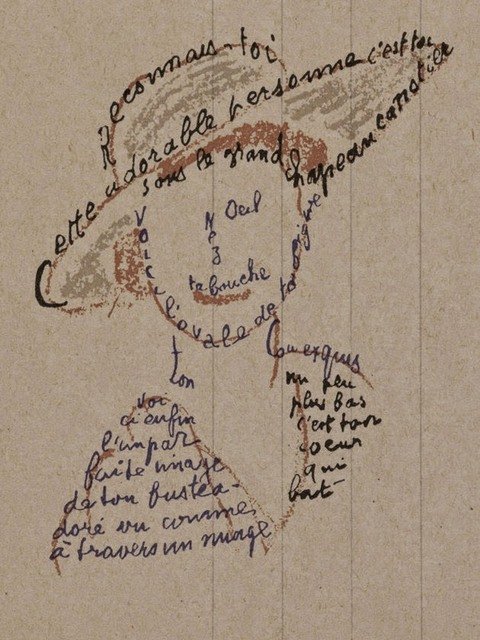 Reconnais-toi
Cette adorable personne c'est toi
sous le grand chapeau canotier
Oeil
Nez
ta bouche
Voici l'ovale de ta figure
ton
Cou exquis
voi
ci enfin
l'impar
faite image
de ton buste a-
doré vu comme
à travers un nuage
un peu
plus bas
c'est ton
coeur
qui
bat